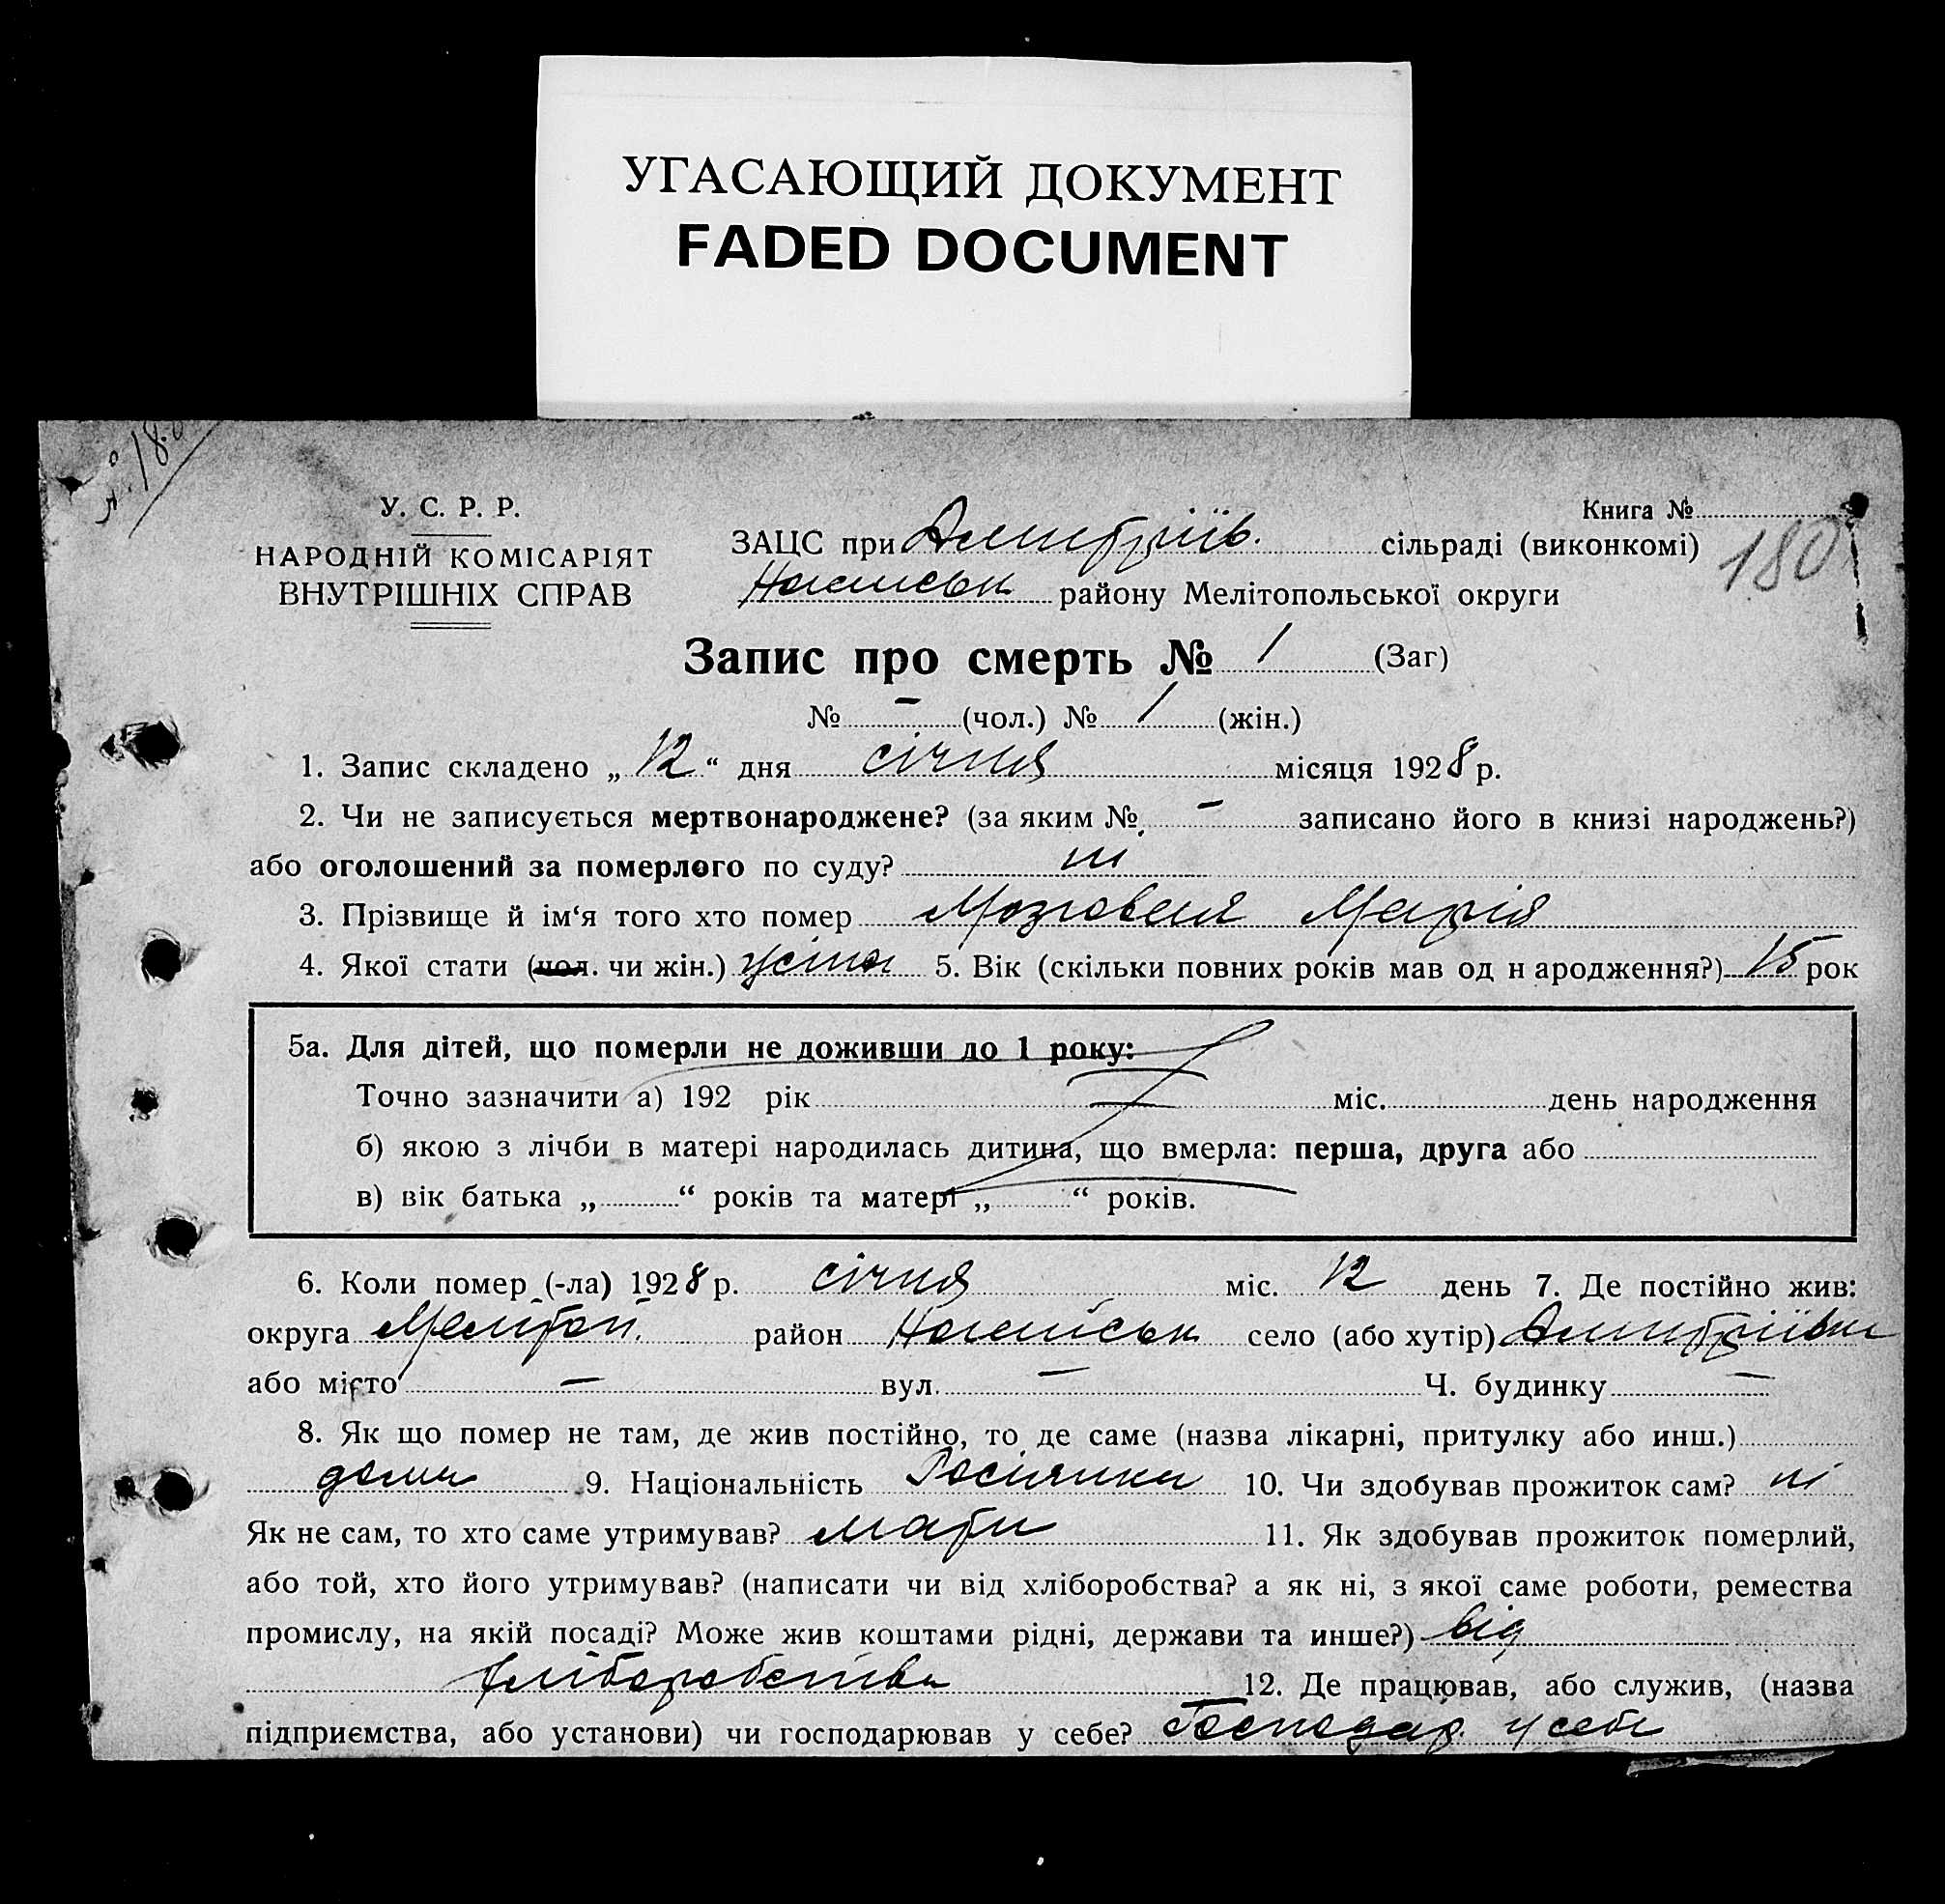 УГАСАЮЩИЙ ДОКУМЕНТ
FADED DOCUMENT
У. С. Р. Р.
НАРОДНІЙ КОМІСАРІЯТ
ВНУТРІШНІХ СПРАВ
Книга №
180
ЗАЦС при Дмитріїв. сільраді (виконкомі)
району Мелітопольської округи
Запис про смерть № 1 (Заг)
№ – (чол.) № 1 (жін.)
1. Запис складено „ 12 “ дня січня місяця 1928 р.
2. Чи не записується мертвонароджене? (за яким № – записано його в книзі народжень?)
або оголошений за померлого по суду? ні
3. Прізвище й ім‘я того хто помер Мозговая Марія
4. Якої стати (чол. чи жін.) жіноч 5. Вік (скільки повних років мав од н ародження?) 15 рок
5а. Для дітей, що померли не доживши до 1 року:
Точно зазначити а) 192 рік міс. день народження
б) якою з лічби в матері народилась дитина, що вмерла: перша, друга або
в) вік батька „ “ років та матері „ “ років.
6. Коли помер (-ла) 1928 р. січня міс. 12 день 7. Де постійно жив:
округа Мелітоп. район село (або хутір) Дмитріївка
або місто – вул. – Ч. будинку –
8. Як що помер не там, де жив постійно, то де саме (назва лікарні, притулку або инш.)
дома 9. Національність Росіянка 10. Чи здобував прожиток сам? ні
Як не сам, то хто саме утримував? мати 11. Як здобував прожиток померлий,
або той, хто його утримував? (написати чи від хліборобства? а як ні, з якої саме роботи, ремества
промислу, на якій посаді? Може жив коштами рідні, держави та инше?) від
хліборобства 12. Де працював, або служив, (назва
підприємства, або установи) чи господарював у себе? Господар. у себе